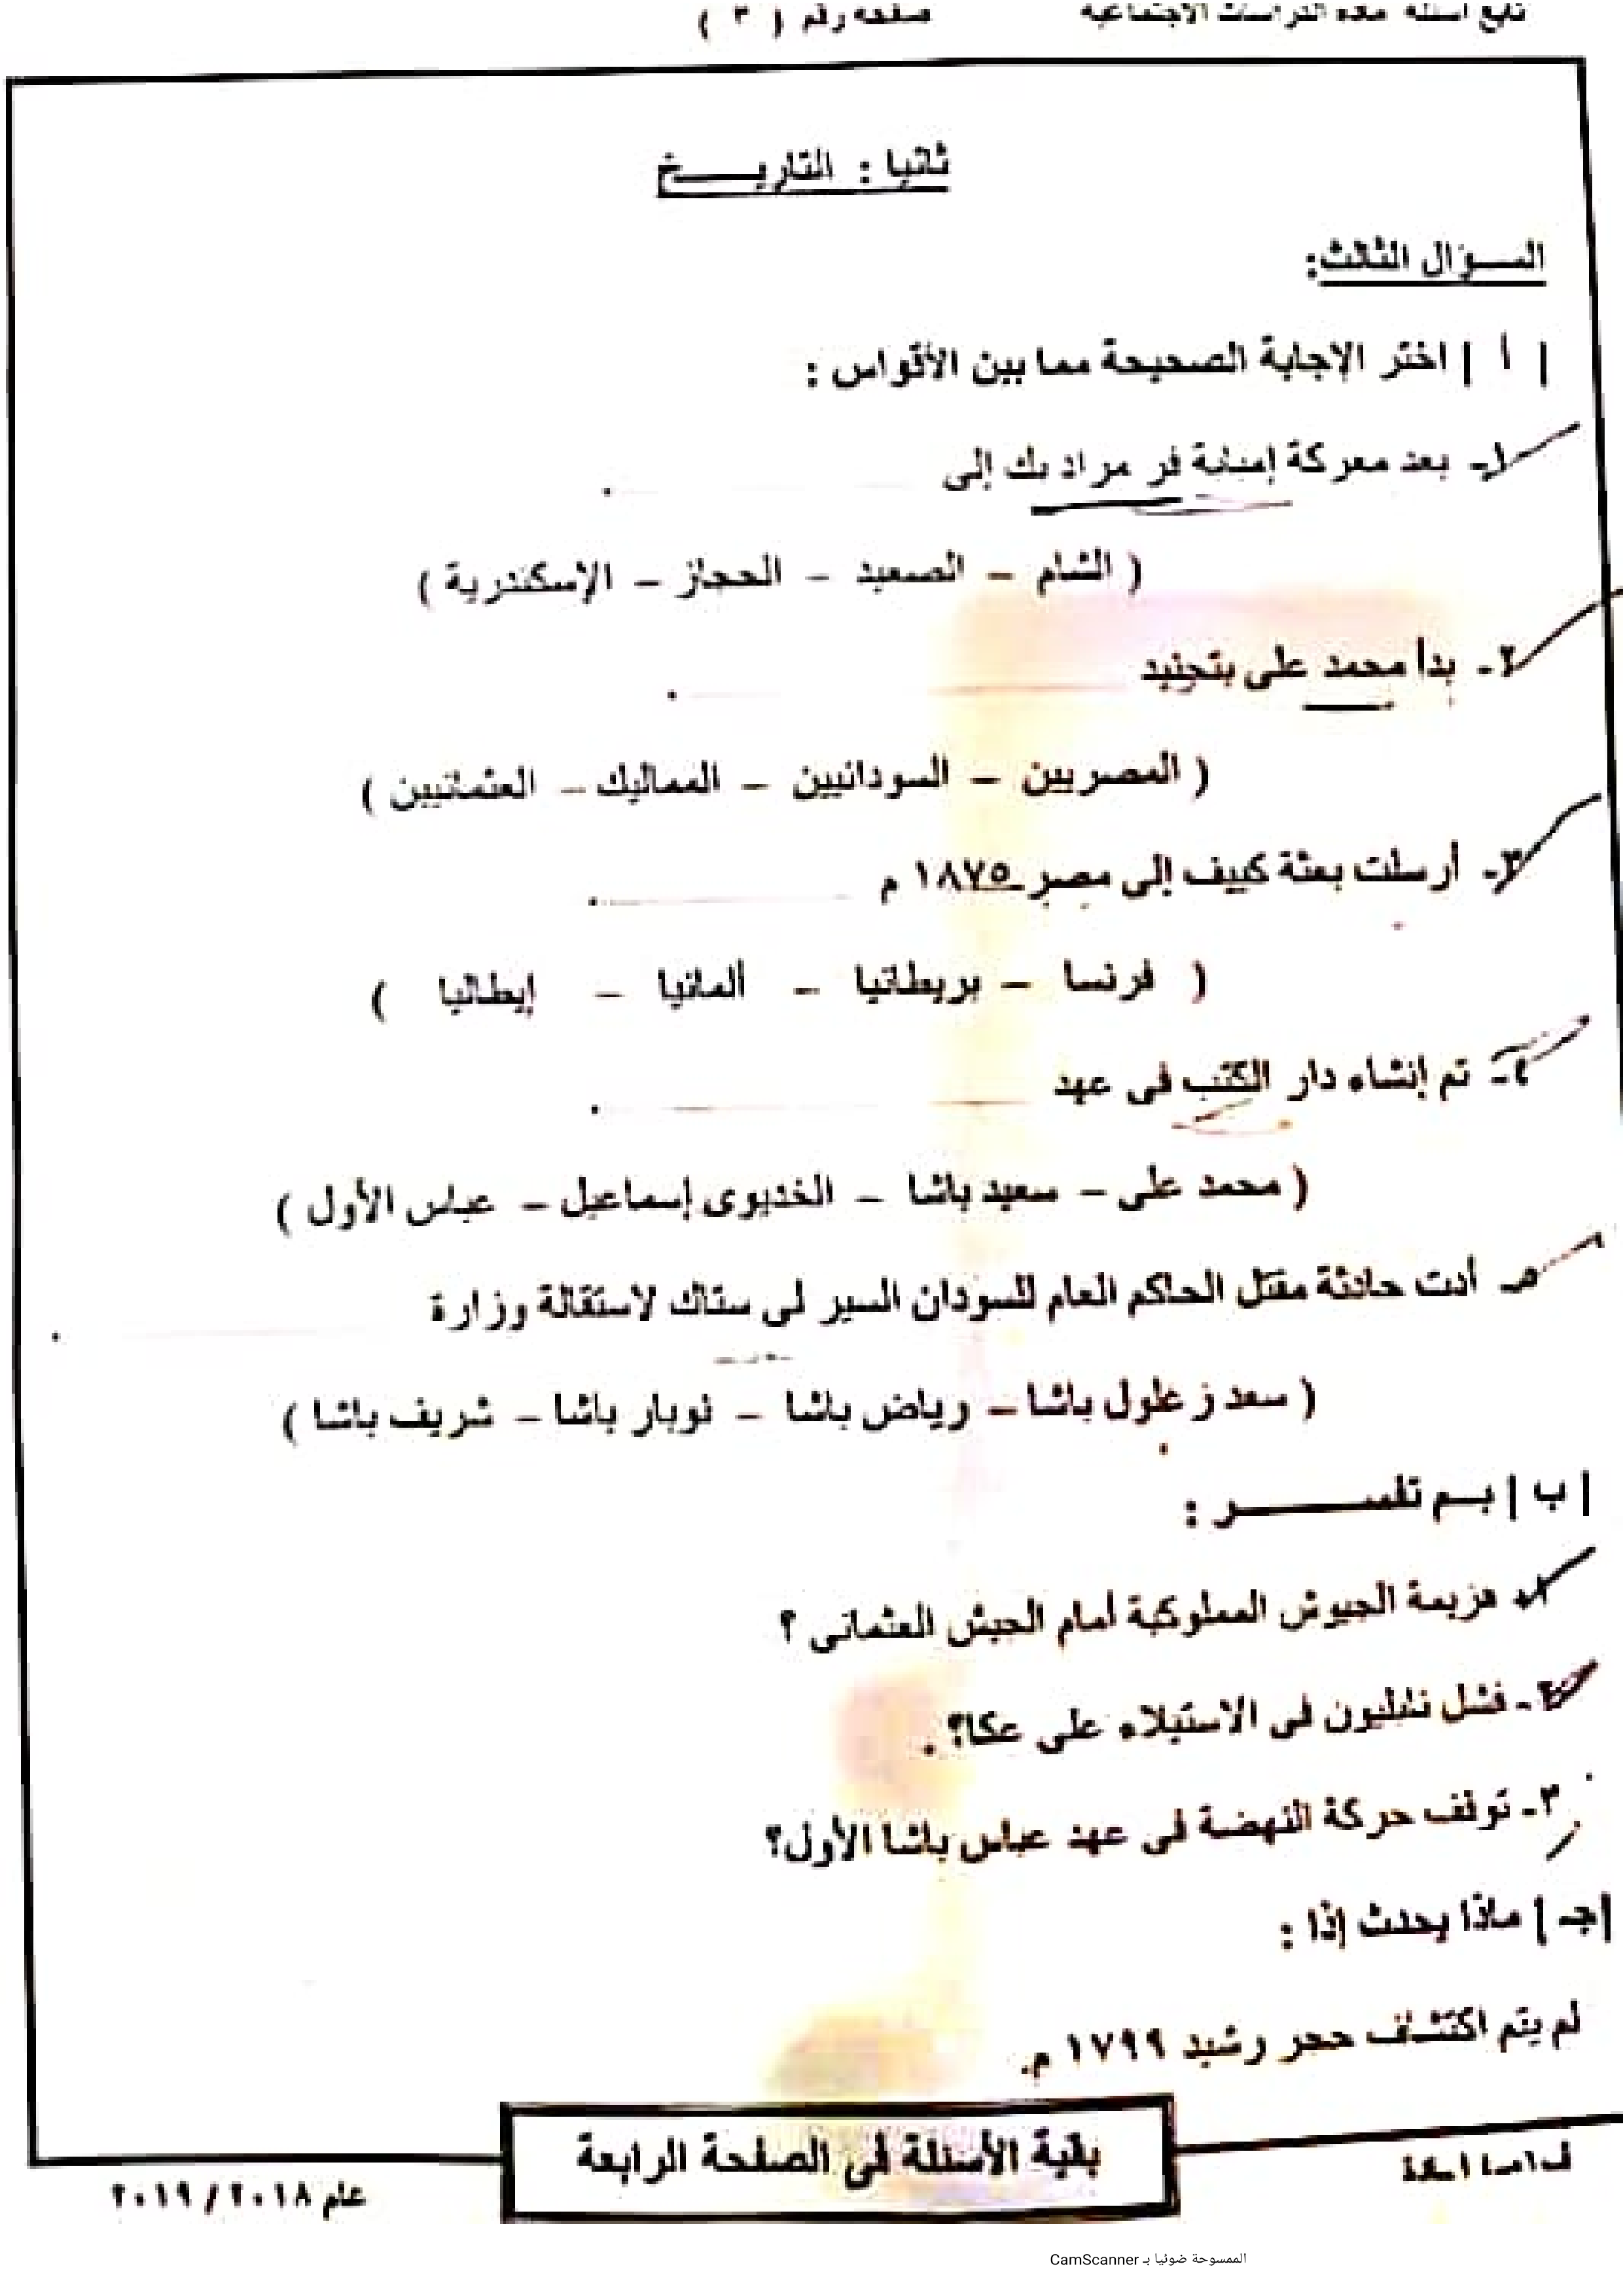 تابع أسئلة مادة الدراسات الاجتماعية صفحة رقم ( ٣ )
ثانيا : التاريخ
السؤال الثالث:
| أ | اختر الإجابة الصحيحة مما بين الأقواس :
١- بعد معركة إمبابة فر مراد بك إلى .
( الشام – الصعيد – الحجاز – الإسكندرية )
٢- بدأ محمد على بتجنيد .
( المصريين – السودانيين – المماليك – العثمانيين )
٣- أرسلت بعثة كييف إلى مصر ١٨٧٥ م .
( فرنسا – بريطانيا – ألمانيا – إيطاليا )
٤- تم إنشاء دار الكتب فى عهد .
( محمد على – سعيد باشا – الخديوى إسماعيل – عباس الأول )
٥- أدت حادثة مقتل الحاكم العام للسودان السير لى ستاك لاستقالة وزارة .
( سعد زغلول باشا – رياض باشا – نوبار باشا – شريف باشا )
| ب | بم تفسر :
١- هزيمة الجيوش المملوكية أمام الجيش العثمانى ؟
٢- فشل نابليون فى الاستيلاء على عكا؟ .
٣- توقف حركة النهضة فى عهد عباس باشا الأول؟
|جـ | ماذا يحدث إذا :
لم يتم اكتشاف حجر رشيد ١٧٩٩ م.
بقية الأسئلة فى الصفحة الرابعة
عام ٢٠١٨ / ٢٠١٩
الممسوحة ضوئيا بـ CamScanner